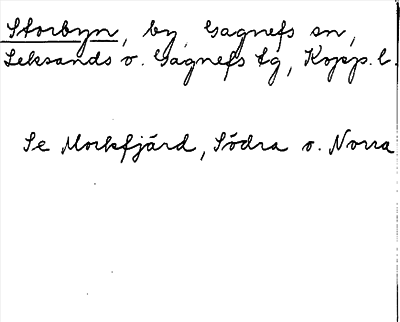 Storbyn, by, Gagnefs sn,
Leksands o. Gagnefs tg, Kopp. l.
Se Morkfjärd, Södra o. Norra